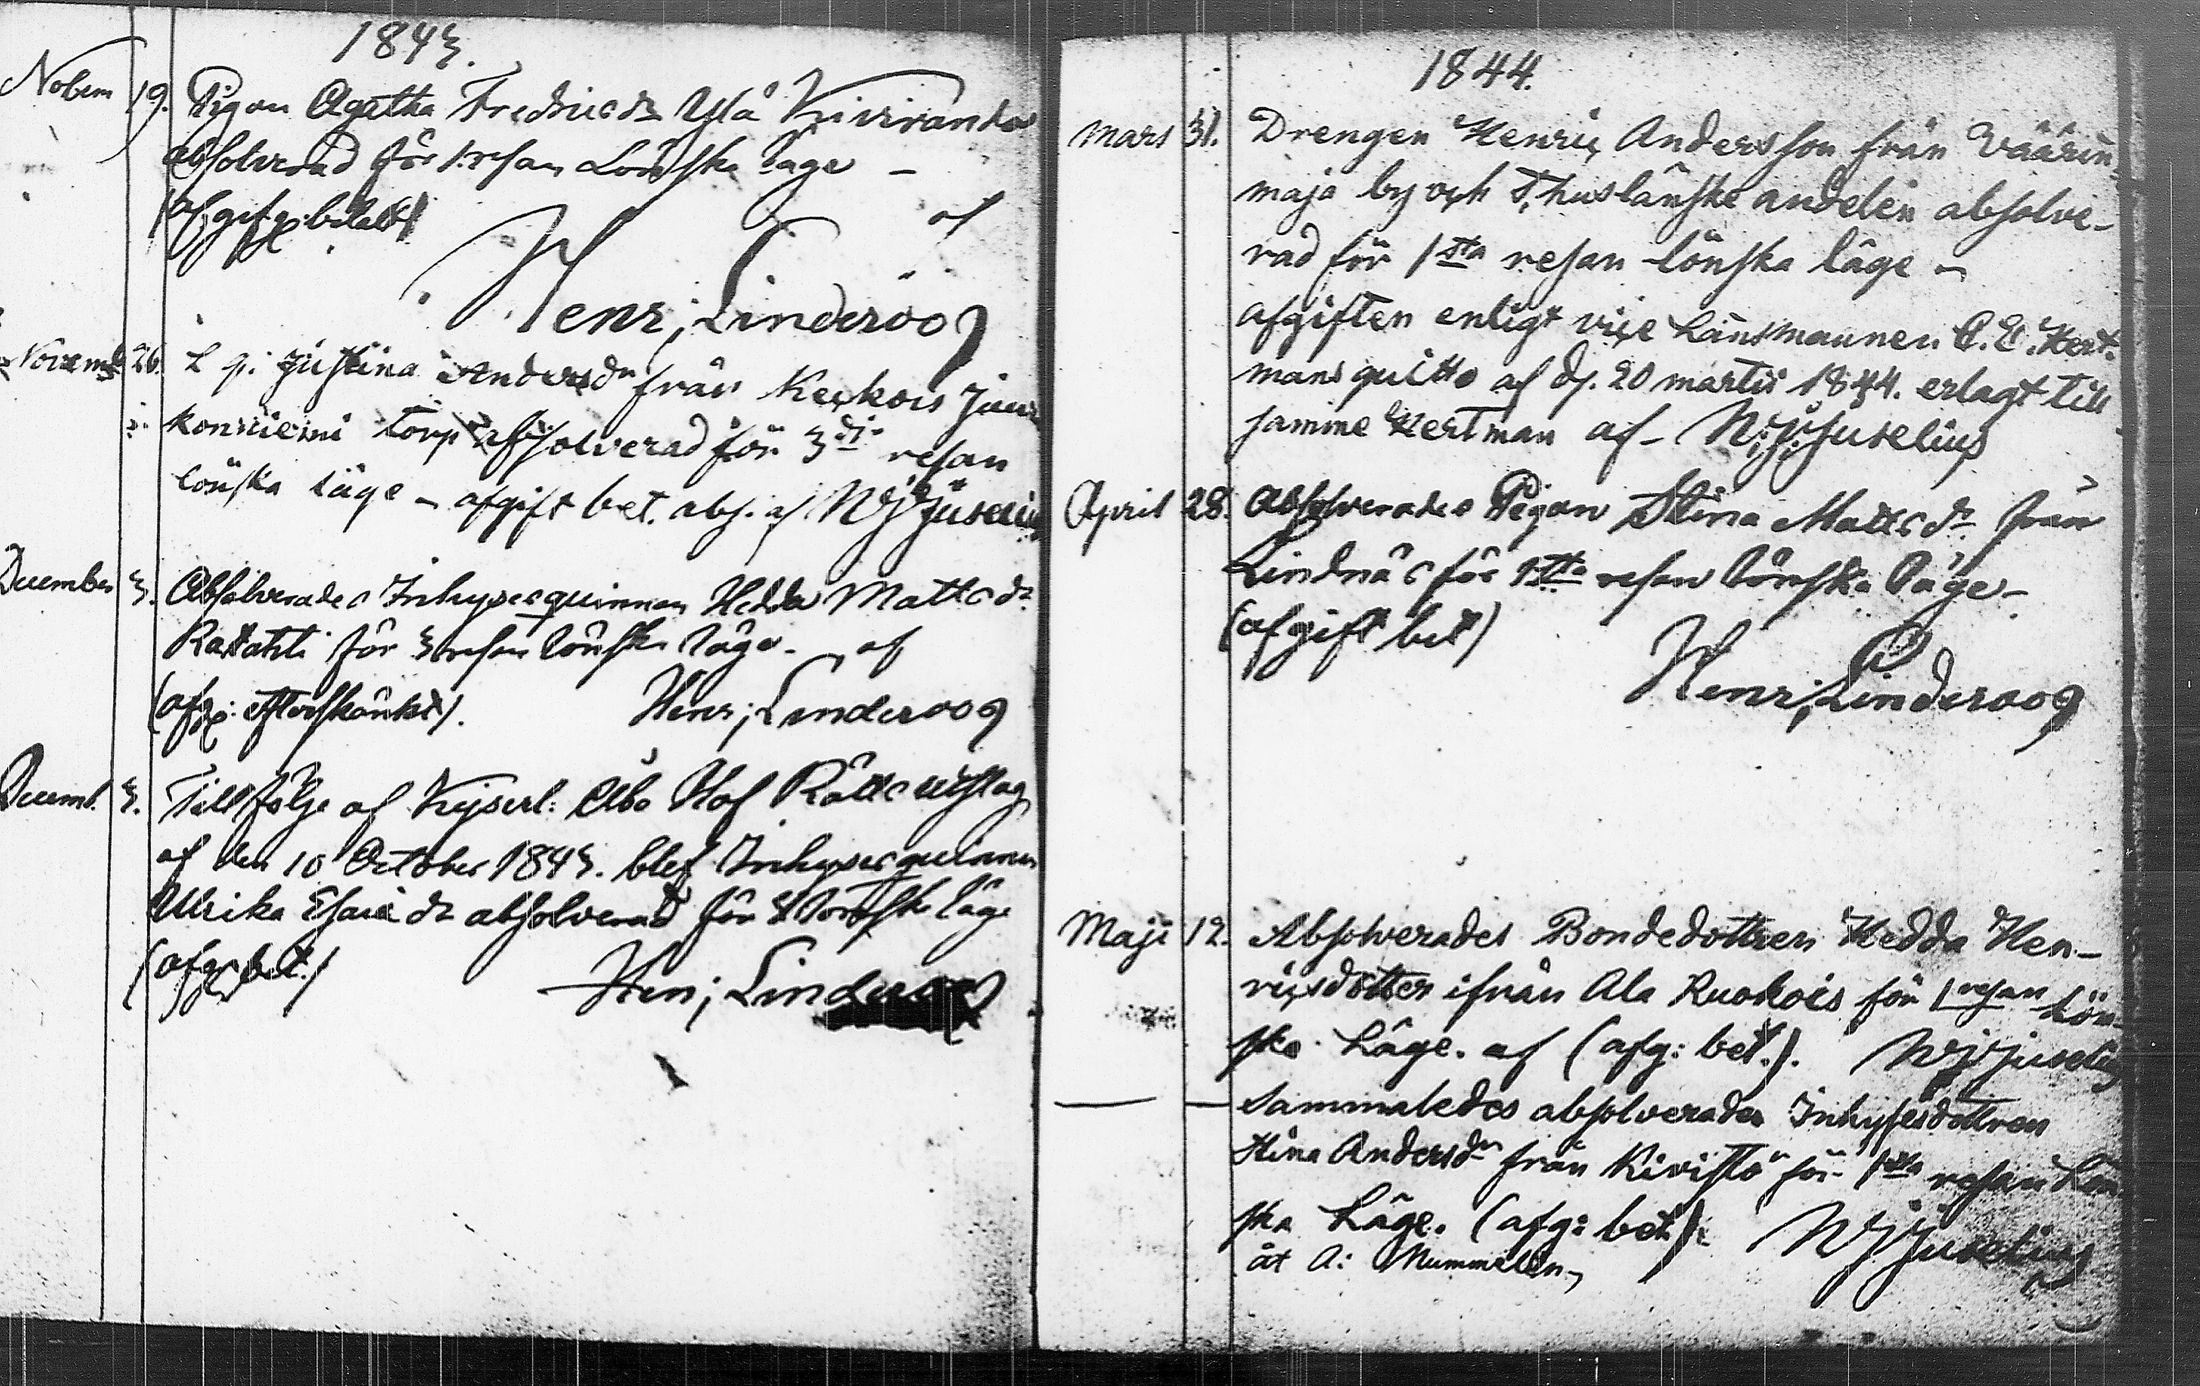 1843.
Novem 19. Pigan Agatha Fredricsdr Ylä Kiviranda
absolverad för 1. resan Lönska läge –
(afgift betalt) af
Henr; Linderoog
Novemb 26. L. qv. Justina Andersdr från Keckois Jun
konniemi torp absolverad för 3dj. resan
lönska läge – afgift bet. abs. af WJJuselius
December 3. Absolverades Inhysesquinnan Hedda Mattsdr
Rattahti för 3 resan lönska läge. af
(afg: efterskänkt). Henr; Linderoog
Decemb. 3. Till följe af Kejserl: Åbo Hof Rätts utslag
af den 10 October 1843. blef Inhyses quinnan
Ulrika Esaiædr absolverad för lönska läge
(afg bet.) Hen; Linderoog
1844.
Mars 31. Drengen Henric Andersson från Väärin
maja by och Thuslänske andelen absolve-
rad för 1sta resan lönska läge –
afgiften enligt vice Länsmannen C. E. Hert-
mans quitto af d. 20 martii 1844. erlagt till
samme Hertman af – WJJuselius
April 28. Absolverades Pigan Stina Mattsdr. från
Lindnäs för 1sta resan lönska läge –
(afgift bet)
Henr; Linderoog
Maji 12. Absolverades Bondedottren Hedda Hen-
ricsdotter ifrån Ala Ruokois för 1 resan Lön-
ska Läge. af (afg: bet.). WJJuselius
— — Sammaledes absolverades Inhysesdottren
Stina Andersdr från Kivistö för 1sta resan Lön
ska Läge. (afg: bet). WJJuselius
åt A: Mummelin